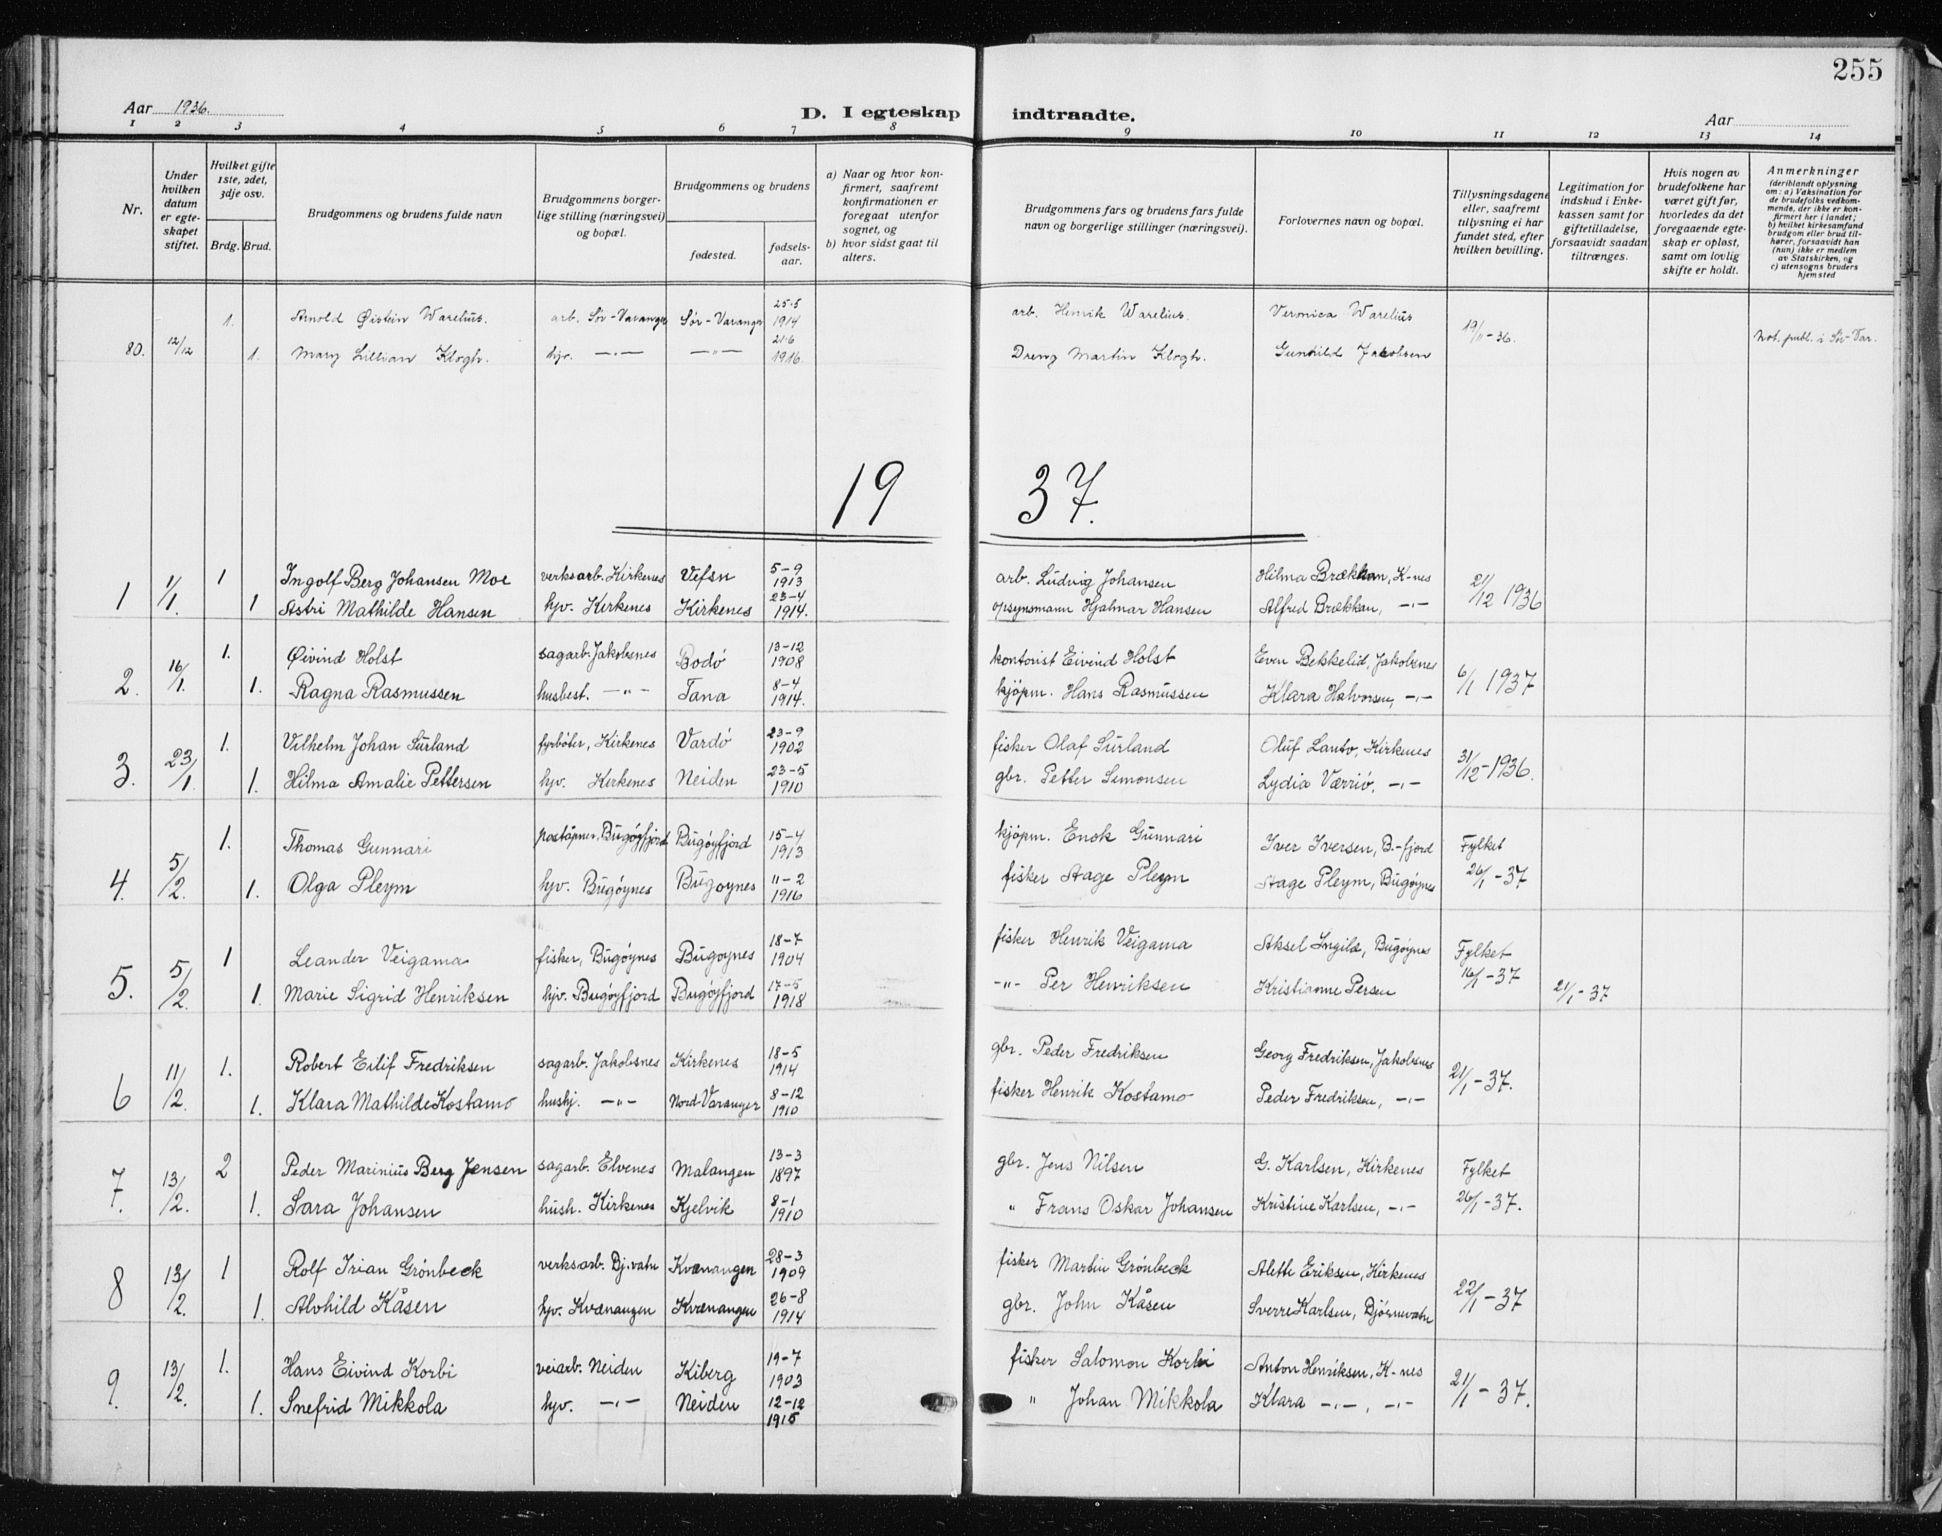 255
Aar 1936. D. I egteskap indtraadte. Aar
1 2 3 4 5 6 7 8 9 10 11 12 13 14
Nr.
Under hvilken datum er egteskapet stiftet.
Hvilket gifte 1ste, 2det, 3dje osv.
Brdg. Brud.
Brudgommens og brudens fulde navn
Brudgommens borgerlige stilling (næringsvei) og bopæl.
Brudgommens og brudens
fødested.
fødselsaar.
a) Naar og hvor konfirmert, saafremt konfirmationen er foregaat utenfor sognet, og
b) hvor sidst gaat til alters.
Brudgommens fars og brudens fars fulde navn og borgerlige stillinger (næringsvei).
Forlovernes navn og bopæl.
Tillysningsdagene eller, saafremt tillysning ei har fundet sted, efter hvilken bevilling.
Legitimation for indskud i Enkekassen samt for giftetilladelse, forsaavidt saadan tiltrænges.
Hvis nogen av brudefolkene har været gift før, hvorledes da det foregaaende egteskap er opløst, samt om lovlig skifte er holdt.
Anmerkninger
(deriblandt oplysning om: a) Vaksination for de brudefolks vedkommende, der ikke er konfirmert her i landet; b) hvilket kirkesamfund brudgom eller brud tilhører, forsaavidt han (hun) ikke er medlem av Statskirken, og c) utensogns bruders hjemsted
1. Arnold Øistein Warelius. arb. Sør-Varanger Sør-Varanger 25-5 1914 arb. Henrik Warelius. Veronica Warelius 19/11-36.
80. 12/12 1. Mary Lillian Klogh. hjv. —"— —"— 21-6 1916 Dreng Martin Klogh. Gunhild Jakobsen Not. publ. i Sør-Var.
19 37.
1 1/1. 1 Ingolf Berg Johansen Moe verksarb. Kirkenes Vefsn 5-9 1913 arb. Ludvig Johansen Hilma Brækkan, K-nes 21/12 1936
1 Astri Mathilde Hansen hjv. Kirkenes Kirkenes 23-4 1914. opsynsmann Hjalmar Hansen Alfred Brækkan, -"-
2. 16/1. 1. Øivind Holst sagarb. Jakobsnes Bodø 13-12 1908 kontorist Eivind Holst Even Bekkelid, Jakobsnes 6/1 1937
1. Ragna Rasmussen husbest. -"- Tana 8-4 1914. kjøpm. Hans Rasmussen Klara Halvorsen, -"-
3. 23/1. 1. Vilhelm Johan Surland fyrbøter, Kirkenes Vardø 23-9 1902 fisker Olaf Surland Oluf Lanto, Kirkenes 31/12-1936.
1. Hilma Amalie Pettersen hjv. Kirkenes Neiden 23-5 1910 gbr. Petter Simonsen Lydia Værriø, -"-
4. 5/2. 1. Thomas Gunnari poståpner, Bugøyfjord Bugøyfjord 15-4 1913 kjøpm. Enok Gunnari Iver Iversen, B.-fjord Fylket
1. Olga Pleym hjv. Bugøynes Bugøynes 11-2 1916 fisker Aage Pleym Aage Pleym, Bugøynes 26/1-37
5. 5/2. 1 Leander Veigama fisker, Bugøynes Bugøynes 18-7 1904 fisker Henrik Veigama Aksel Ingilæ, Bugøynes Fylket
1. Marie Sigrid Henriksen hjv. Bugøyfjord Bugøyfjord 17-5 1918 -"- Per Henriksen Kristianne Persen 16/1-37 21/1-37
6 11/2. 1. Robert Eilif Fredriksen sagarb. Jakobsnes Kirkenes 18-5 1914 gbr. Peder Fredriksen Georg Fredriksen, Jakobsnes 21/1-37.
1. Klara Mathilde Kostamo hushj. -"- Nord-Varanger 8-12 1910 fisker Henrik Kostamo Peder Fredriksen, -"-
7. 13/2. 2 Peder Marinius Berg Jensen sagarb. Elvenes Malangen 13-3 1897 gbr. Jens Nilsen G. Karlsen, Kirkenes Fylket
1. Sara Johansen hush. Kirkenes Kjelvik 8-1 1910 " Frans Oskar Johansen Kristine Karlsen, -"- 26/1-37.
8 13/2. 1 Rolf Irian Grønbeck verksarb. Bj.vatn Kvænangen 28-3 1909 fisker Martin Grønbeck Alette Eriksen, Kirkenes 22/1-37
1. Alvhild Kåsen hjv. Kvænangen Kvænangen 26-8 1914 gbr. John Kåsen Sverre Karlsen, Bjørnevatn
9. 13/2. 1. Hans Eivind Korbi veiarb. Neiden Kiberg 19-7 1903 fisker Salomon Korbi Anton Henriksen, K-nes 21/1-37.
1. Snefrid Mikkola hjv. -"- Neiden 12-12 1915 " Johan Mikkola Klara -"-, -"-